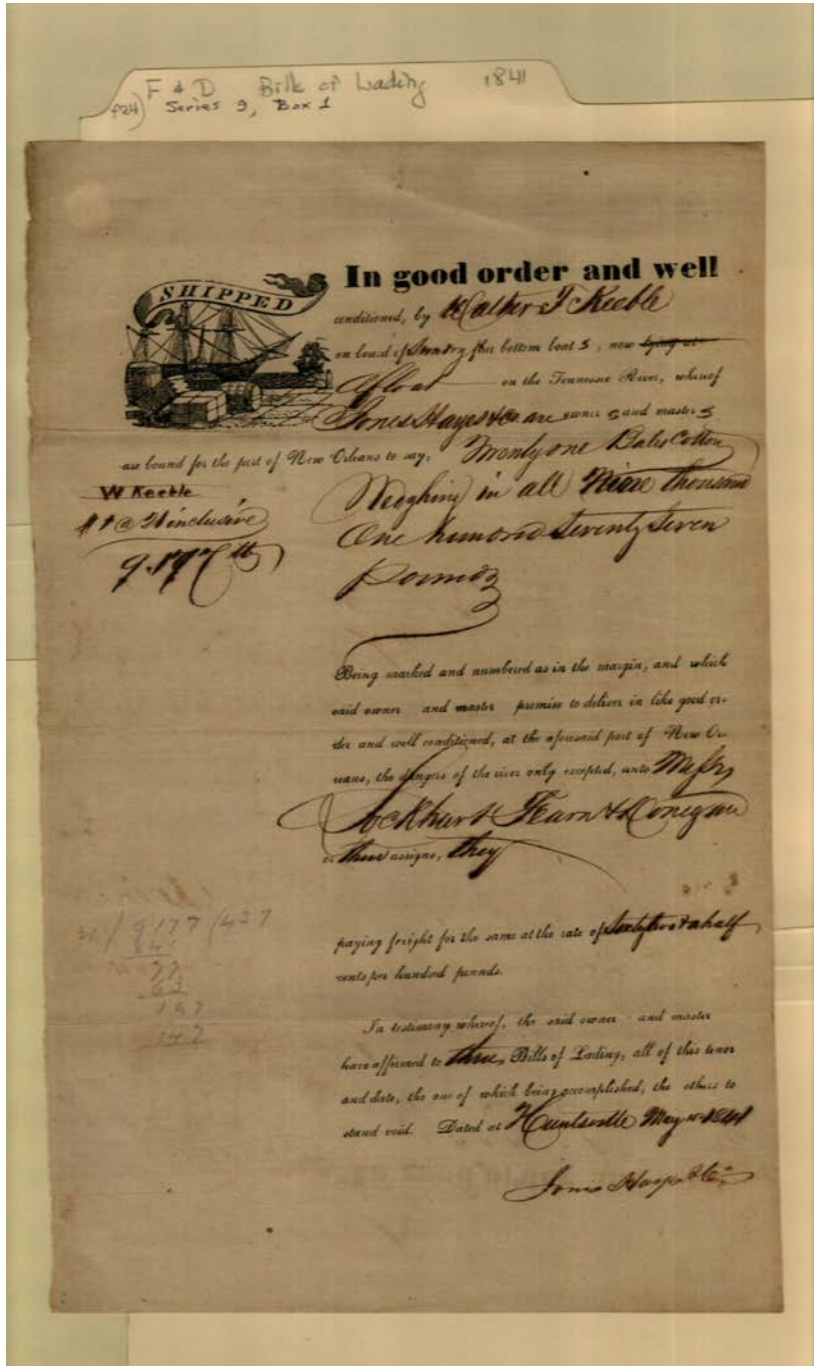 F & D Bills of Lading 1841
f24) Series 9, Box 1
SHIPPED
In good order and well
conditioned, by Walker T Keeble
on board of Sundry flat bottom boat s, now lying at
Afloat on the Tennessee River, whereof
Jones Hayes & Co are owner s and master s
are bound for the port of New Orleans to say, Twenty one Bales Cotton
W Keeble
Weighing in all Nine thousand
# 1 @ 21 inclusive
One hundred Seventy Seven
9.177 lb
Pounds
Being marked and numbered as in the margin, and which
said owner and master promise to deliver in like good or-
der and well conditioned, at the aforesaid port of New Or-
leans, the dangers of the river only excepted, unto Messrs
Lockhart Fearn & Donegan
or their assigns, they
9177 / 437
84
77
63
147
147
paying freight for the same at the rate of Sixty two & a half
cents per hundred pounds.
In testimony whereof, the said owner and master
have affirmed to three Bills of Lading, all of this tenor
and date, the one of which being accomplished, the others to
stand void. Dated at Huntsville May 1841
Jones Hayes & Co